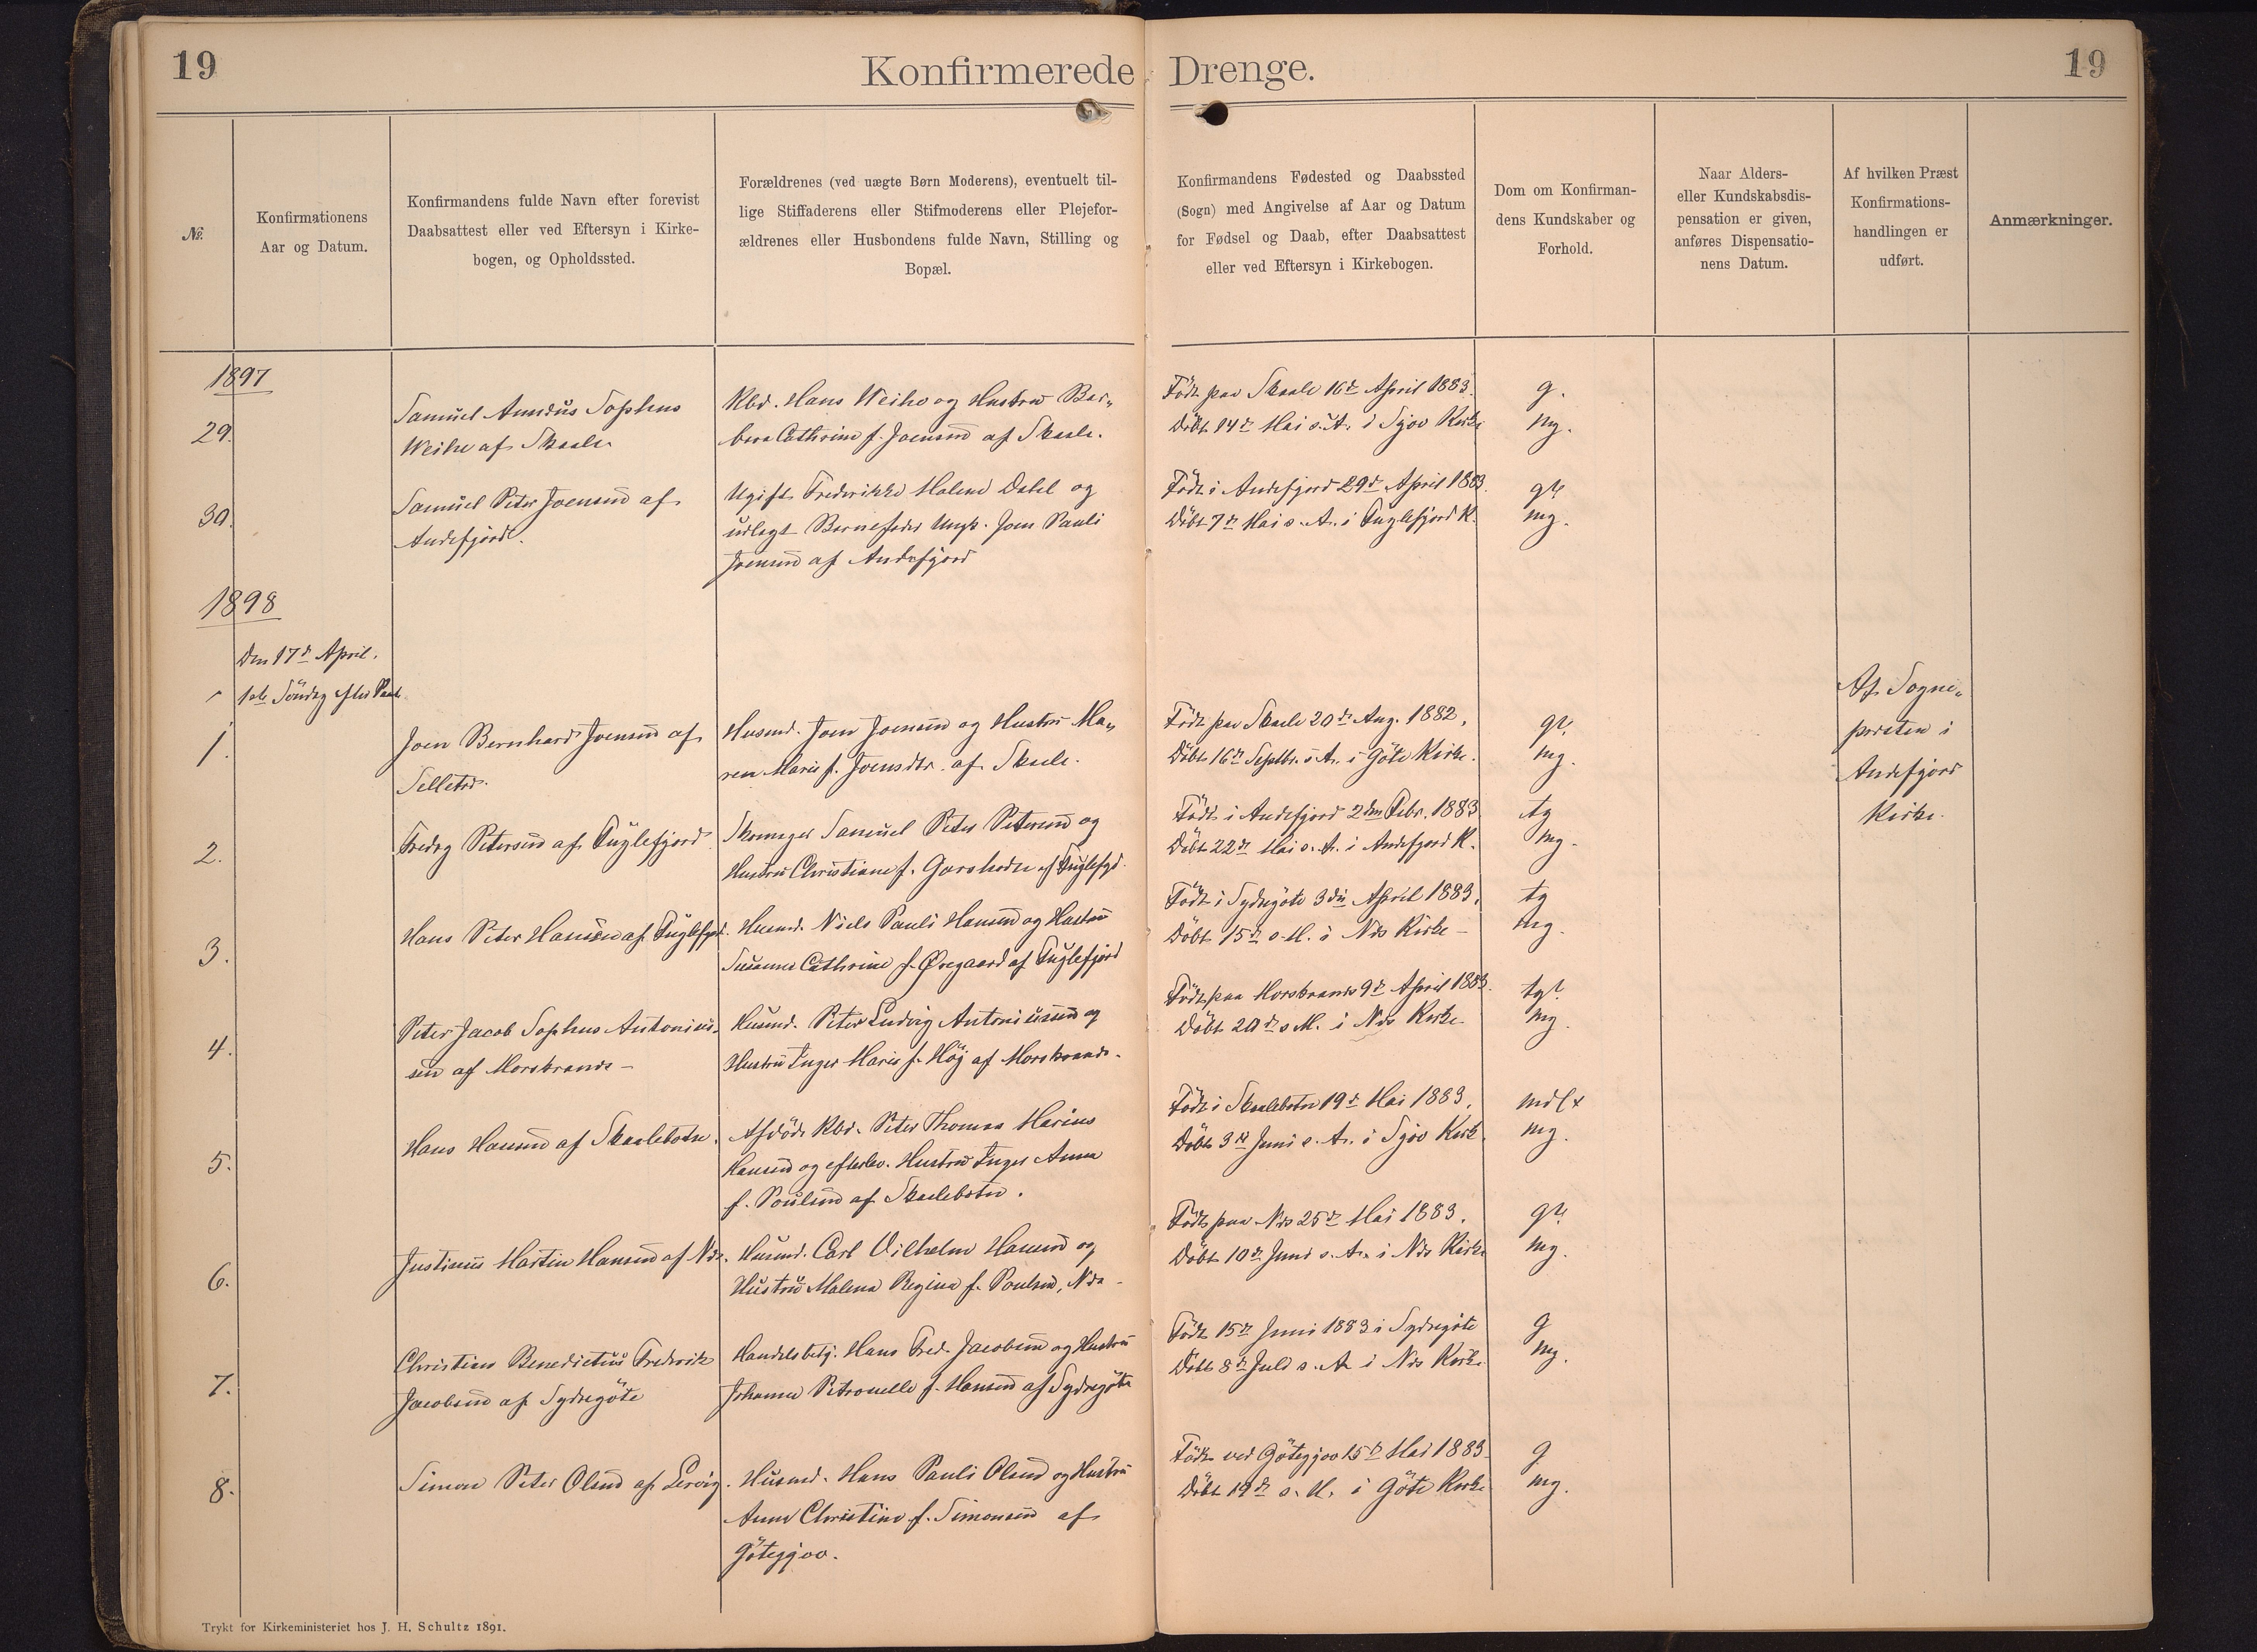 19
Konfirmerede Drenge.
19
№.
Konfirmationens
Aar og Datum.
Konfirmandens fulde Navn efter forevist
Daabsattest eller ved Eftersyn i Kirke-
bogen, og Opholdssted.
Forældrenes (ved uægte Børn Moderens), eventuelt til-
lige Stiffaderens eller Stifmoderens eller Plejefor-
ældrenes eller Husbondens fulde Navn, Stilling og
Bopæl.
Konfirmandens Fødested og Daabssted
(Sogn) med Angivelse af Aar og Datum
for Fødsel og Daab, efter Daabsattest
eller ved Eftersyn i Kirkebogen.
Dom om Konfirman-
dens Kundskaber og
Forhold.
Naar Alders-
eller Kundskabsdis-
pensation er given,
anføres Dispensatio-
nens Datum.
Af hvilken Præst
Konfirmations-
handlingen er
udført.
Anmærkninger.
1897
29.
Samuel Sophus
Weihe af Skaale.
Kbd. Hans Weihe og Hustru Bar-
bara Cathrine f. Joensen af Skaale.
Födt paa Skaale 16de April 1883.
Döbt 14de Mai s. A. i Sjov Kirke
g.
mg.
30.
Samuel Peter Joensen af
Andefjord.
Ugift Frederikke Malene Dahl og
udlagt Barnefader Ungk. Joen Pauli
Joensen af Andefjord
Födt i Andefjord 29de April 1883.
Döbt 7de Mai s. A. i Fuglefjord K.
g
mg.
1898
Den 17de April.
1ste Söndag efter Paaske
1.
Joen Bernhard Joensen af
Selletræ.
Husmd. Joen Joensen og Hustru Ma-
ren Marie f. Joensdtr. af Skaale.
Födt paa Skaale 20de Aug. 1882.
Döbt 16de Septbr. s. A. i Göte Kirke.
g
mg.
Af Sogne-
præsten i
Andefjord
Kirke.
2.
Petersen af Fuglefjord.
Skomager Samuel Peter Petersen og
Hustru Christiane f. af Fuglefjd.
Födt i Andefjord 2den Febr. 1883
Döbt 22de Mai s. A. i Andefjord K.
tg
mg.
3.
Hans Peter Hansen af Fuglefjd.
Husmd. Niels Pauli Hansen og Hustru
Susanne Cathrine f. Øregaard af Fuglefjord
Födt i Sydregöte 3die April 1883.
Döbt 15de s. M. i Nds Kirke –
tg
mg.
4.
Peter Jacob Sophus Antonius-
sen af Morskranes –
Husmd. Peter Ludvig Antoniussen og
Hustru Inger Marie f. Höj af Morskranes.
Födt paa Morskranes 9de April 1883.
Döbt 20de s M. i Nds Kirke
tg
mg.
5.
Hans Hansen af Skaalebotn.
Afdöde Kbd. Peter Thomas Marius
Hansen og efterlev. Hustru Inger Anna
f. Poulsen af Skaalebotn.
Födt i Skaalebotn 19de Mai 1883.
Döbt 3de Juni s. A. i Sjov Kirke
mdl
mg.
6.
Justinus Martin Hansen af Nds.
Husmd. Carl Vilhelm Hansen og
Hustru Malena Regina f. Poulsen, Nds –
Födt paa Nds 25de Mai 1883.
Döbt 10de Juni s. A. i Nds Kirke
g
mg.
7.
Christian Benedictus Frederik
Jacobsen af Sydregöte
Handelsbetj. Hans Fred. Jacobsen og Hustru
Johanna Petronelle f. Hansen af Sydregöte
Födt 15de Juni 1883 i Sydregöte
Döbt 8de Juli s. A. i Nds Kirke.
g
mg.
8.
Simon Peter Olsen af Lervig.
Husmd. Hans Pauli Olsen og Hustru
Anna Christine f. Simonsen af
Götegjov.
Födt ved Götegjov 15de Mai 1883
Döbt 19de s. M. i Göte Kirke
g
mg.
Trykt for Kirkeministeriet hos J. H. Schultz 1891.